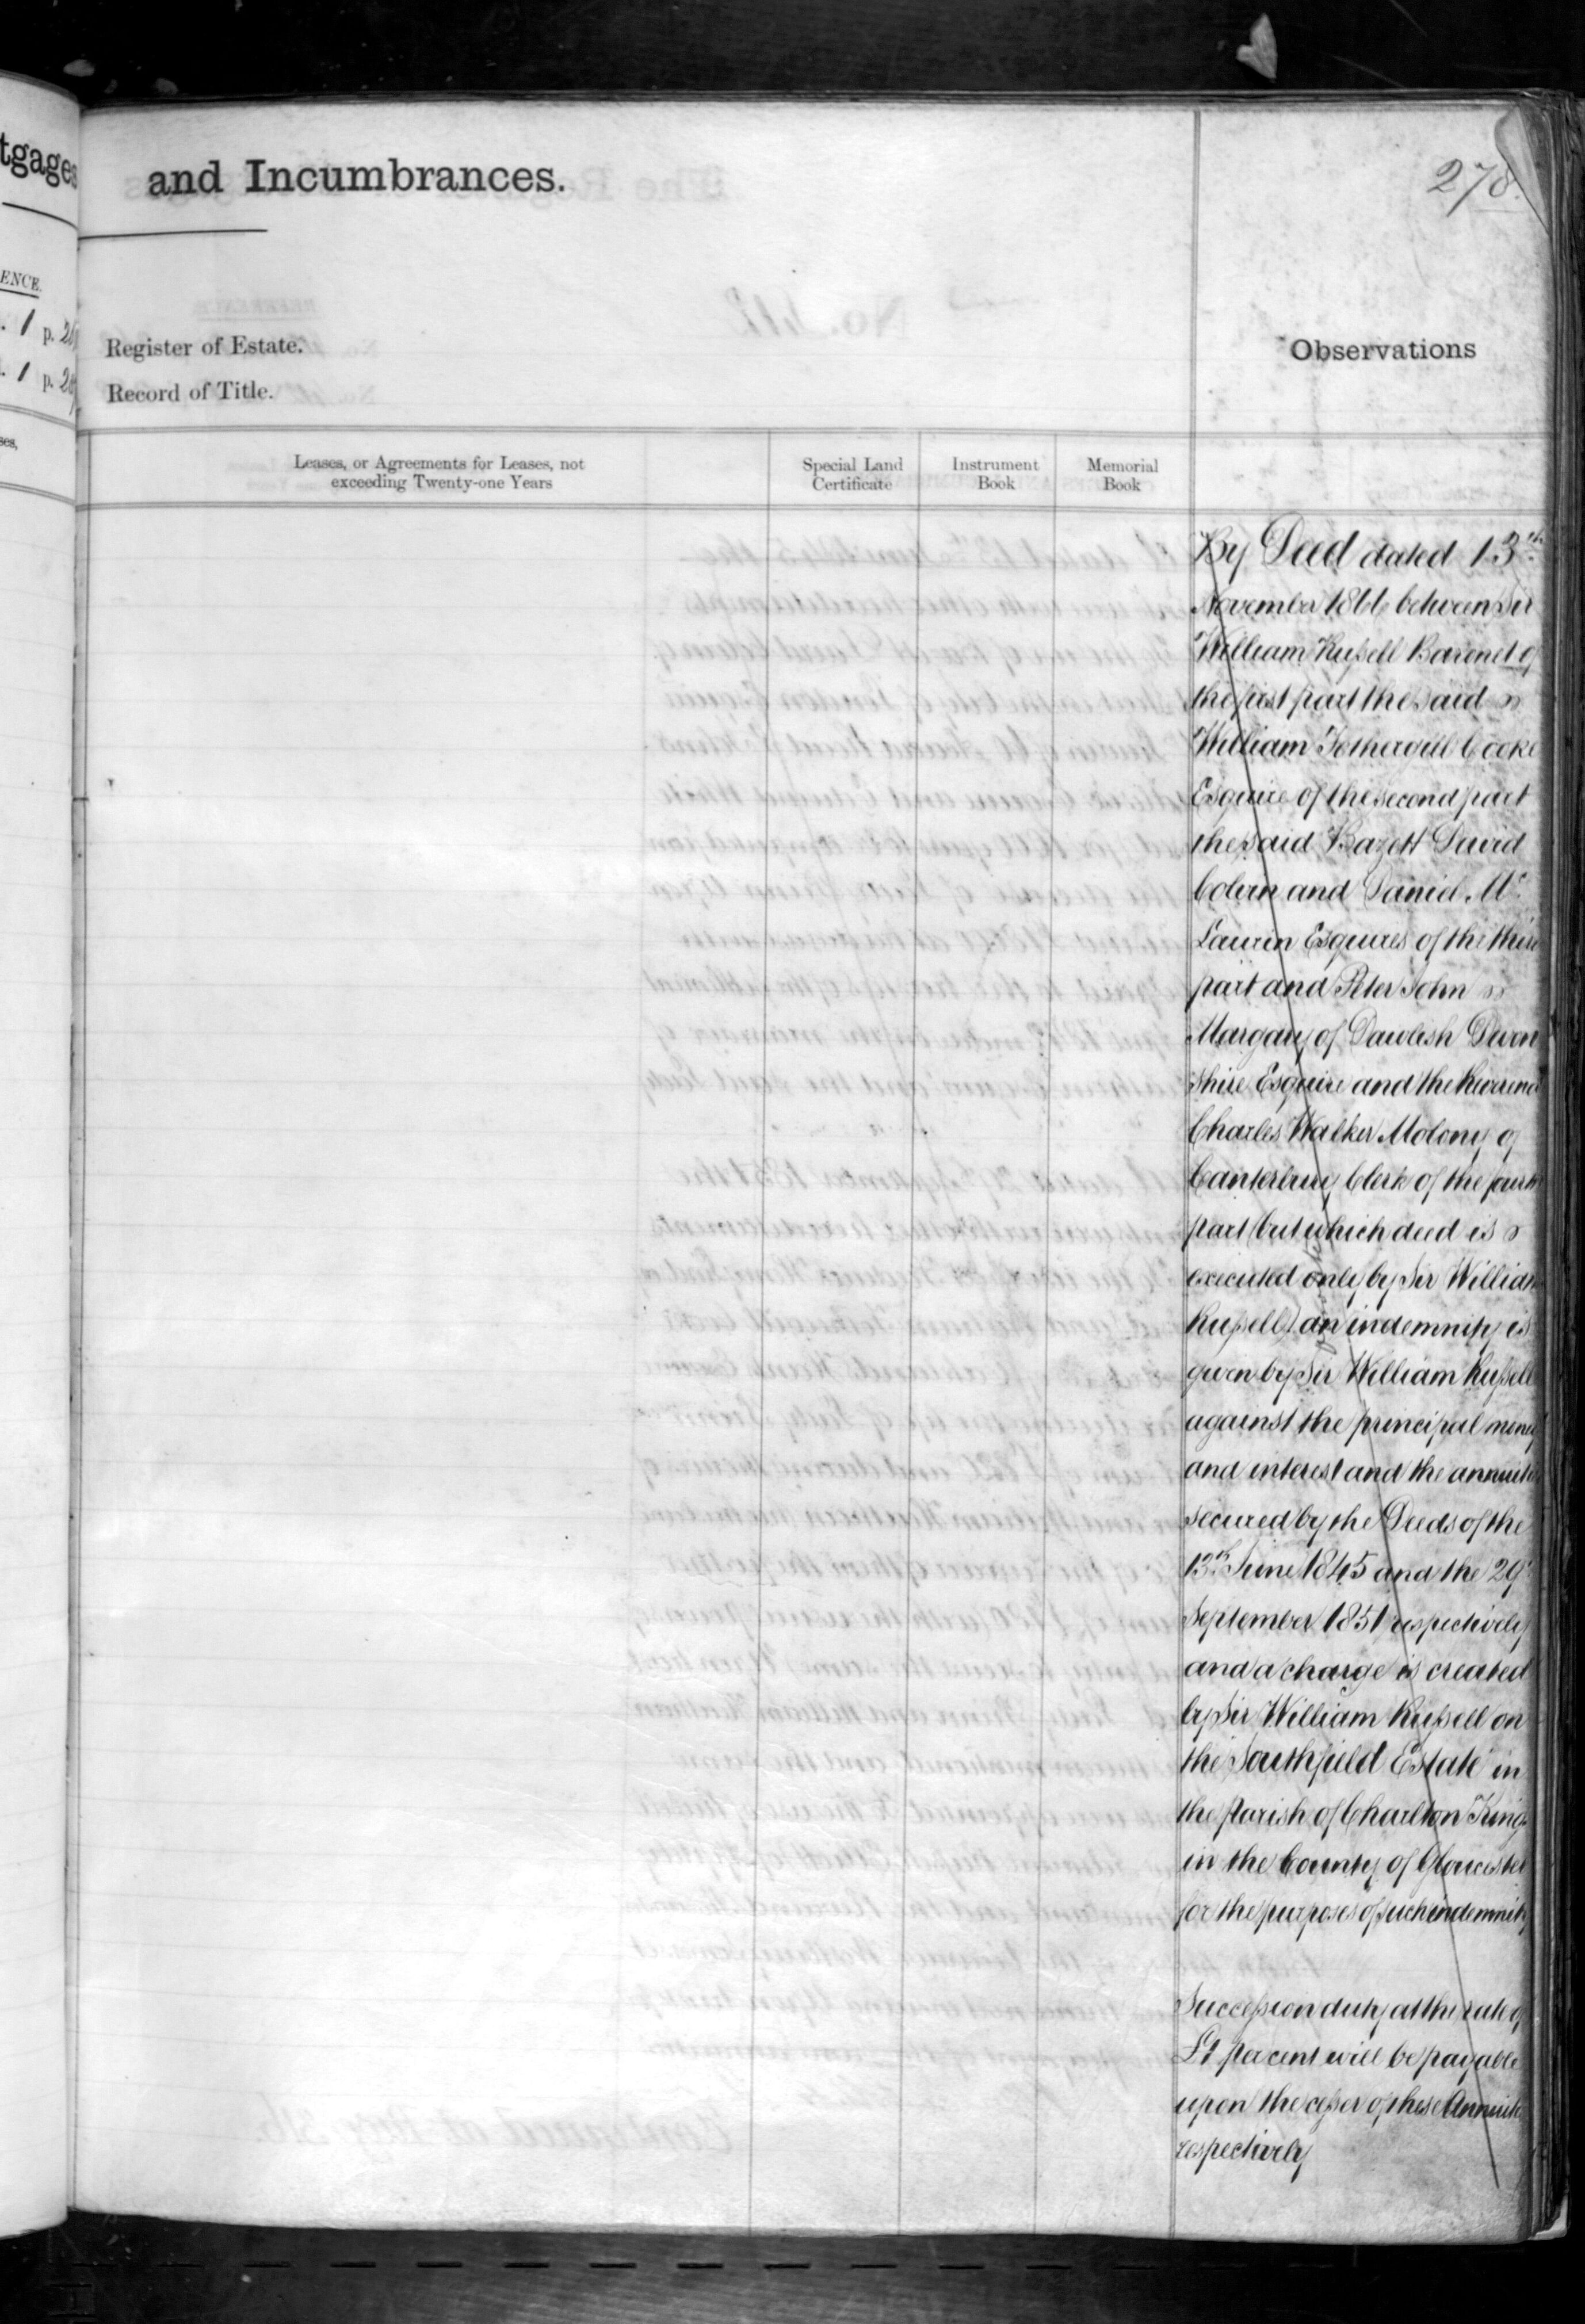 tgages
and Incumbrances.
278.
ENCE.
. 1 p.
. 1 p.
ses,
Register of Estate.
Record of Title.
Observations
Leases, or Agreements for Leases, not
exceeding Twenty-one Years
Special Land
Certificate
Instrument
Book
Memorial
Book
By Deed dated 13th
November 1866 between Sir
William Russell Baronet of
the first part the said
William Fothergill Cooke
Esquire of the second part
the said Bazett David
Colvin and Daniel Mc
Laurin Esquires of the third
part and Peter John
Margary of Dawlish Devon
shire Esquire and the Reverend
Charles Walker Molony of
Canterbury Clerk of the fourth
part (but which deed is
executed only by Sir William
Russell) an indemnity is
given by Sir William Russell
against the principal money
and interest and the annuities
secured by the Deeds of the
13th June 1845 and the 29
September 1851 respectively
and a charge is created
by Sir William Russell on
the Southfield Estate in
the Parish of Charlton Kings
in the County of Gloucester
for the purposes of such indemnity
Succession duty at the rate of
£1 per cent will be payable
upon the cesser of these Annuities
respectively